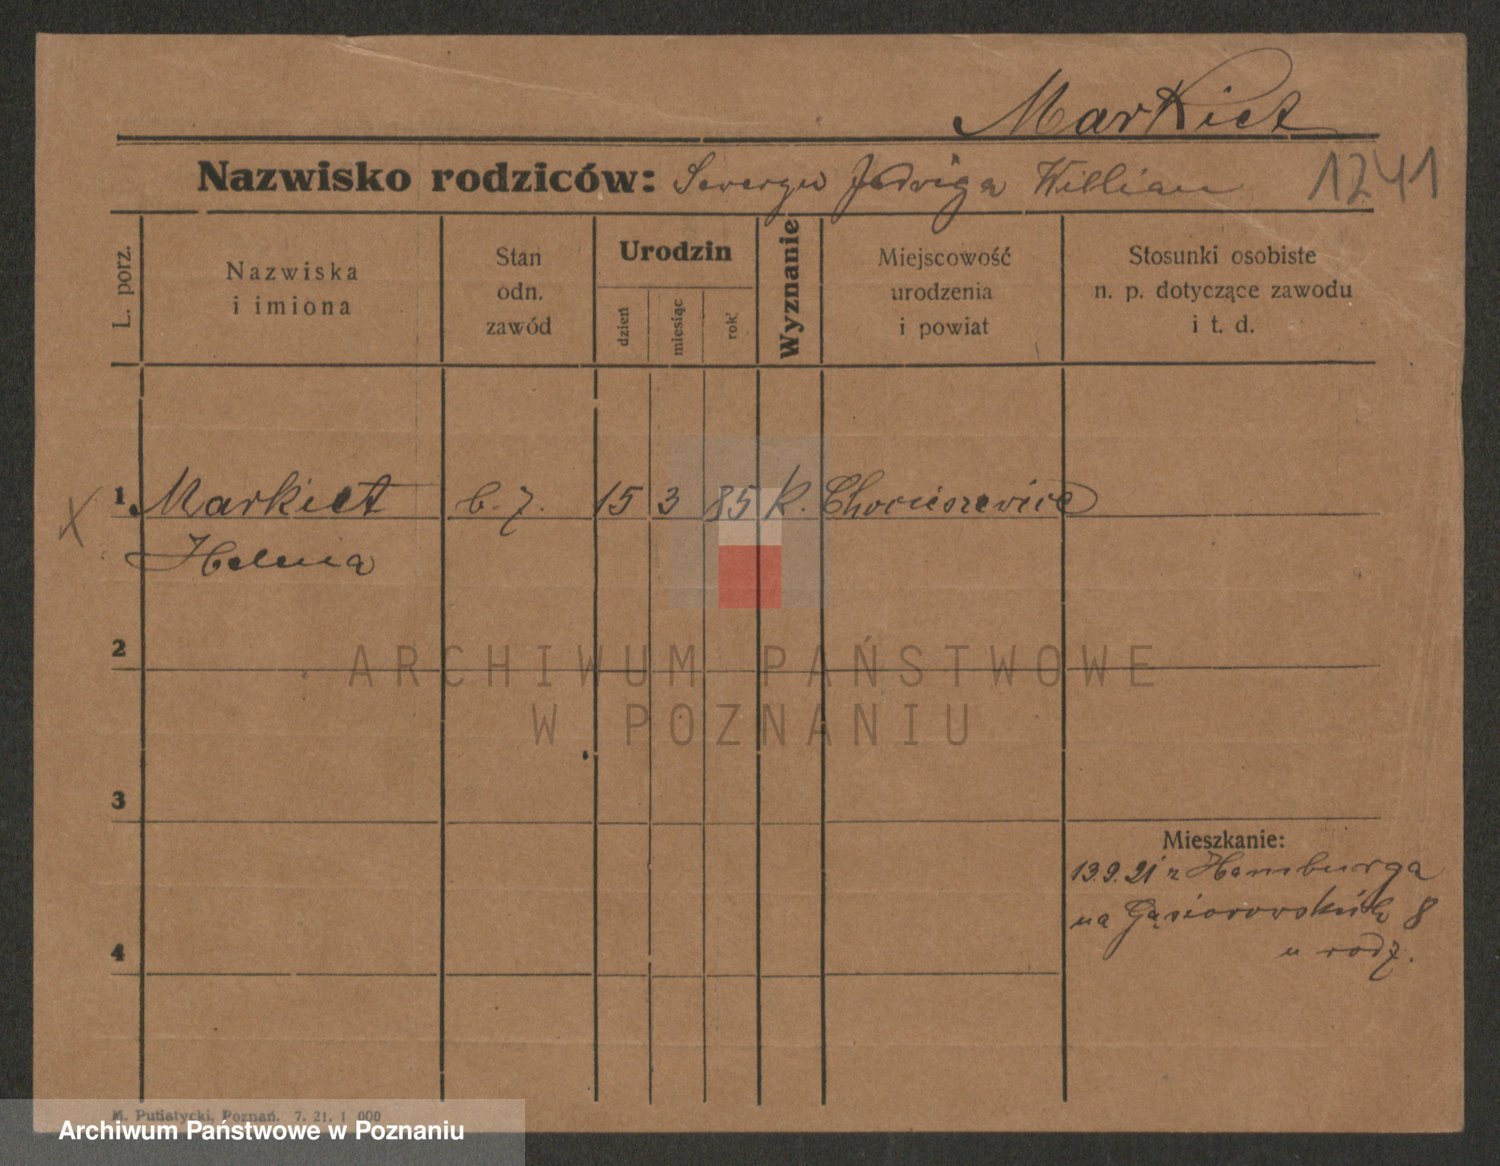 Markiet
Nazwisko rodziców: Seweryn Jadwiga Willian
1241
L. porz.
Nazwiska
i imiona
Stan
odn.
zawód
Urodzin
dzień
miesiąc
rok
Wyznanie
Miejscowość
urodzenia
i powiat
Stosunki osobiste
n. p. dotyczące zawodu
i t. d.
x 1 Markiet b. z. 15 3 85 k. Chocieszewice
Helena
2
3
4
Mieszkanie:
13.9.21 z Hamburga
na Gąsiorowskich 8
u rodz.
M. Putiatycki, Poznań. 7. 21. 1 000
ARCHIWUM PAŃSTWOWE
W POZNANIU
Archiwum Państwowe w Poznaniu